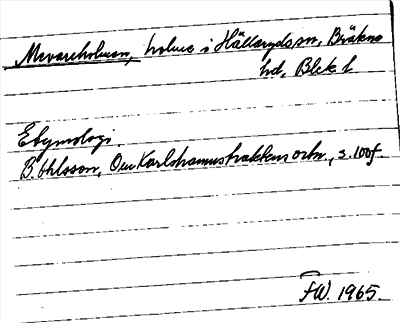 Mevareholmen, holme i Hällaryds sn, Bräkne
hd, Blek. l
Etymologi.
B. Ohlsson, Om Karlshamnstraktens ortn., s. 100f.
FW. 1965.